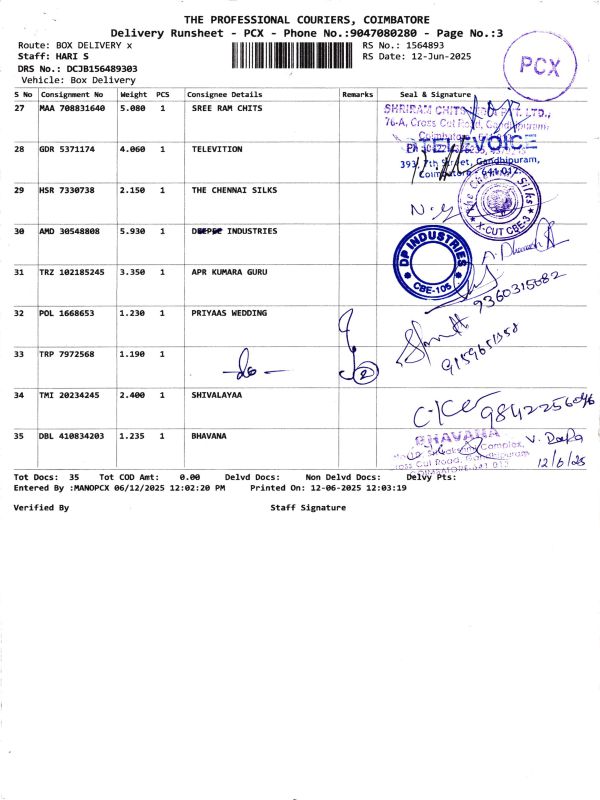 THE PROFESSIONAL COURIERS, COIMBATORE
Delivery Runsheet - PCX - Phone No.:9047080280 - Page No.:3
Route: BOX DELIVERY x RS No.: 1564893
Staff: HARI S RS Date: 12-Jun-2025
DRS No.: DCJB156489303
Vehicle: Box Delivery
PCX
S No Consignment No Weight PCS Consignee Details Remarks Seal & Signature
27 MAA 708831640 5.080 1 SREE RAM CHITS
SHRIRAM CHITS LTD.,
76-A, Cross Cut Road, Gandhipuram,
Coimbatore
28 GDR 5371174 4.060 1 TELEVITION
TELEVOICE
393, 7th Street, Gandhipuram,
Coimbatore - 641 012.
29 HSR 7330738 2.150 1 THE CHENNAI SILKS
The Chennai Silks
X-CUT CBE-3
30 AMD 30548808 5.930 1 DEEPEE INDUSTRIES
DP INDUSTRIES
CBE-105
31 TRZ 102185245 3.350 1 APR KUMARA GURU
9360315682
32 POL 1668653 1.230 1 PRIYAAS WEDDING
9159651358
33 TRP 7972568 1.190 1 -do- 2
34 TMI 20234245 2.400 1 SHIVALAYAA
9842256096
35 DBL 410834203 1.235 1 BHAVANA
BHAVANA
Complex,
Cross Cut Road, Gandhipuram
COIMBATORE-641 012
12/6/25
Tot Docs: 35 Tot COD Amt: 0.00 Delvd Docs: Non Delvd Docs: Delvy Pts:
Entered By :MANOPCX 06/12/2025 12:02:20 PM Printed On: 12-06-2025 12:03:19
Verified By Staff Signature